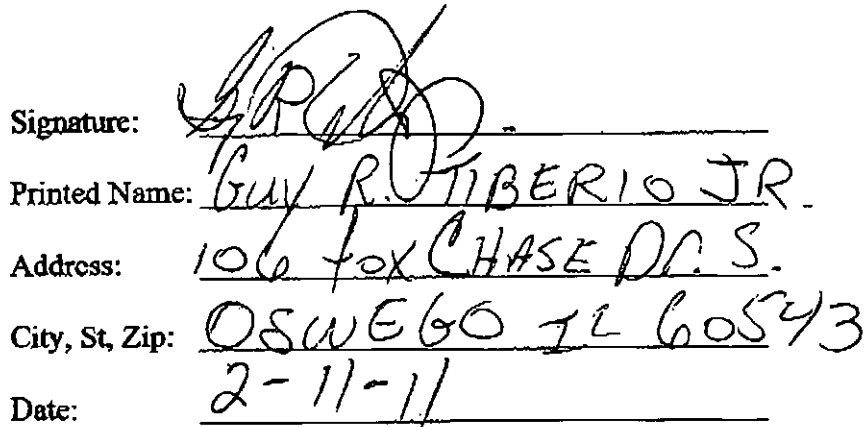 Signature:
Printed Name: Guy R. TIBERIO JR.
Address: 106 FOX CHASE DR. S.
City, St, Zip: OSWEGO IL 60543
Date: 2-11-11